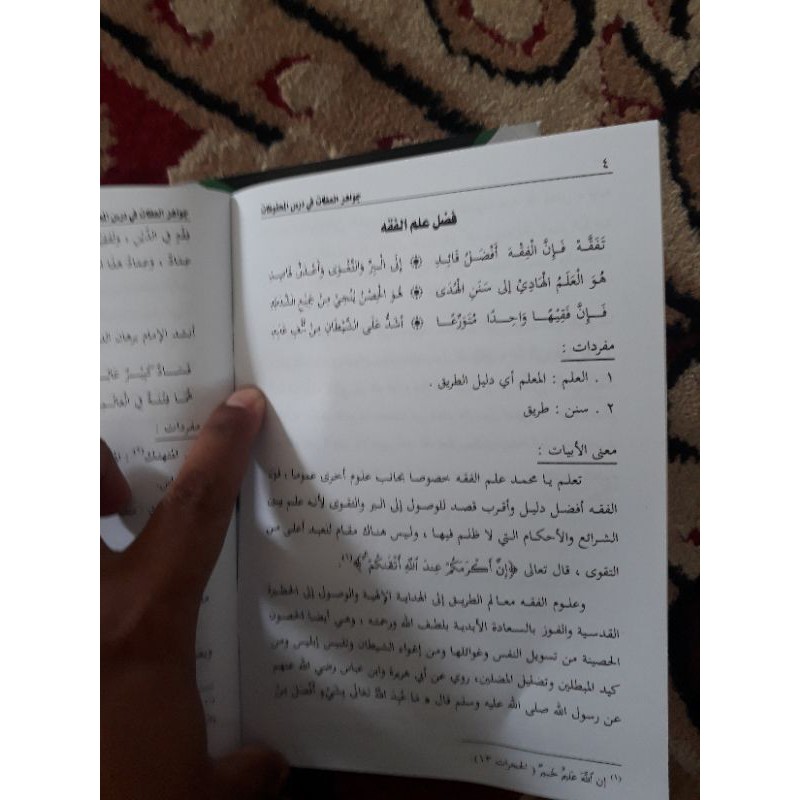 ٤
جواهر العقلات في درس المحفوظات
فضل علم الفقه
تَفَقَّهْ فَإِنَّ الْفِقْهَ أَفْضَلُ قَائِدٍ ۞ إِلَى الْبِرِّ وَالتَّقْوَى وَأَعْدَلُ قَاصِدٍ
هُوَ الْعَلَمُ الْهَادِيْ إِلَى سَنَنِ الْهُدَى ۞ هُوَ الْحِصْنُ يُنْجِيْ مِنْ جَمِيْعِ الشَّدَائِدِ
فَإِنَّ فَقِيْهًا وَاحِدًا مُتَوَرِّعًا ۞ أَشَدُّ عَلَى الشَّيْطَانِ مِنْ أَلْفِ عَابِدٍ
مفردات :
١ . العلم : المعلم أي دليل الطريق .
٢ . سنن : طريق
معنى الأبيات :
تعلم يا محمد علم الفقه خصوصا بجانب علوم أخرى عموما ، فإن
الفقه أفضل دليل وأقرب قصد للوصول إلى البر والتقوى لأنه علم يبين
الشرائع والأحكام التي لا ظلم فيها ، وليس هناك مقام لتعبد أعلى من
التقوى ، قال تعالى ﴿إِنَّ أَكْرَمَكُمْ عِندَ اللَّهِ أَتْقَىٰكُمْ﴾(١).
وعلوم الفقه معالم الطريق إلى الهداية الإلهية والوصول إلى الحظيرة
القدسية والفوز بالسعادة الأبدية بلطف الله ورحمته ، وهي أيضا الحصون
الحصينة من تسويل النفس وغوائلها ومن إغواء الشيطان وتلبيس إبليس ومن
كيد المبطلين وتضليل المضلين، روي عن أبي هريرة وابن عباس رضي الله عنهم
عن رسول الله صلى الله عليه وسلم قال « مَا عُبِدَ اللهُ تَعَالَى بِشَيْءٍ أَفْضَلَ مِنْ
(١) إن اللَّهَ عَلِيمٌ خَبِيرٌ ( الحجرات ١٣ ).
جواهر العقلات في درس
أنشد الإمام برهان
مفردات :